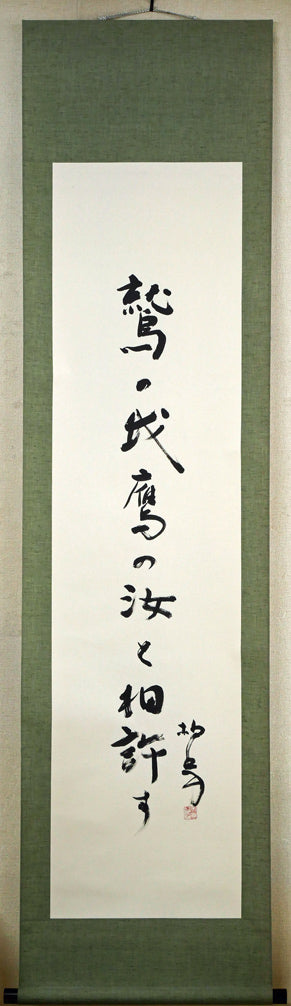 鷲の我鷹の汝と相許す